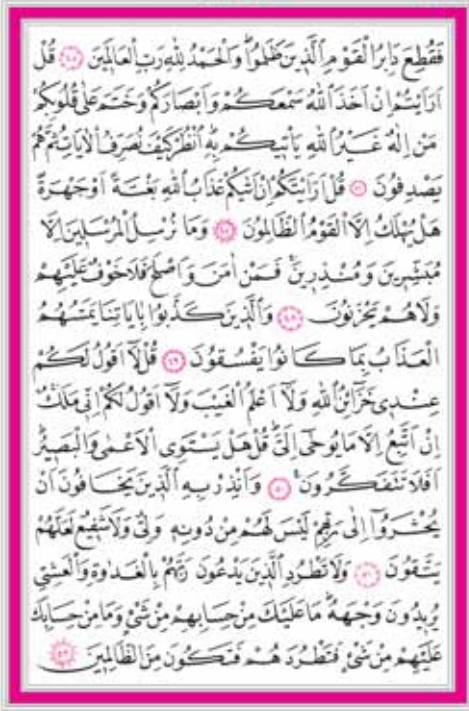 فَقُطِعَ دَابِرُ الْقَوْمِ الَّذِينَ ظَلَمُوا وَالْحَمْدُ لِلّٰهِ رَبِّ الْعَالَمِينَ ﴿٤٥﴾ قُلْ
اَرَاَيْتُمْ اِنْ اَخَذَ اللّٰهُ سَمْعَكُمْ وَاَبْصَارَكُمْ وَخَتَمَ عَلٰى قُلُوبِكُمْ
مَنْ اِلٰهٌ غَيْرُ اللّٰهِ يَاْتِيكُمْ بِهِ اُنْظُرْ كَيْفَ نُصَرِّفُ الْاٰيَاتِ ثُمَّ هُمْ
يَصْدِفُونَ ﴿٤٦﴾ قُلْ اَرَاَيْتَكُمْ اِنْ اَتٰيكُمْ عَذَابُ اللّٰهِ بَغْتَةً اَوْ جَهْرَةً
هَلْ يُهْلَكُ اِلَّا الْقَوْمُ الظَّالِمُونَ ﴿٤٧﴾ وَمَا نُرْسِلُ الْمُرْسَلِينَ اِلَّا
مُبَشِّرِينَ وَمُنْذِرِينَ فَمَنْ اٰمَنَ وَاَصْلَحَ فَلَا خَوْفٌ عَلَيْهِمْ
وَلَا هُمْ يَحْزَنُونَ ﴿٤٨﴾ وَالَّذِينَ كَذَّبُوا بِاٰيَاتِنَا يَمَسُّهُمُ
الْعَذَابُ بِمَا كَانُوا يَفْسُقُونَ ﴿٤٩﴾ قُلْ لَا اَقُولُ لَكُمْ
عِنْدِي خَزَائِنُ اللّٰهِ وَلَا اَعْلَمُ الْغَيْبَ وَلَا اَقُولُ لَكُمْ اِنِّي مَلَكٌ
اِنْ اَتَّبِعُ اِلَّا مَا يُوحٰى اِلَيَّ قُلْ هَلْ يَسْتَوِي الْاَعْمٰى وَالْبَصِيرُ
اَفَلَا تَتَفَكَّرُونَ ﴿٥٠﴾ وَاَنْذِرْ بِهِ الَّذِينَ يَخَافُونَ اَنْ
يُحْشَرُوا اِلٰى رَبِّهِمْ لَيْسَ لَهُمْ مِنْ دُونِهِ وَلِيٌّ وَلَا شَفِيعٌ لَعَلَّهُمْ
يَتَّقُونَ ﴿٥١﴾ وَلَا تَطْرُدِ الَّذِينَ يَدْعُونَ رَبَّهُمْ بِالْغَدٰوةِ وَالْعَشِيِّ
يُرِيدُونَ وَجْهَهُ مَا عَلَيْكَ مِنْ حِسَابِهِمْ مِنْ شَيْءٍ وَمَا مِنْ حِسَابِكَ
عَلَيْهِمْ مِنْ شَيْءٍ فَتَطْرُدَهُمْ فَتَكُونَ مِنَ الظَّالِمِينَ ﴿٥٢﴾